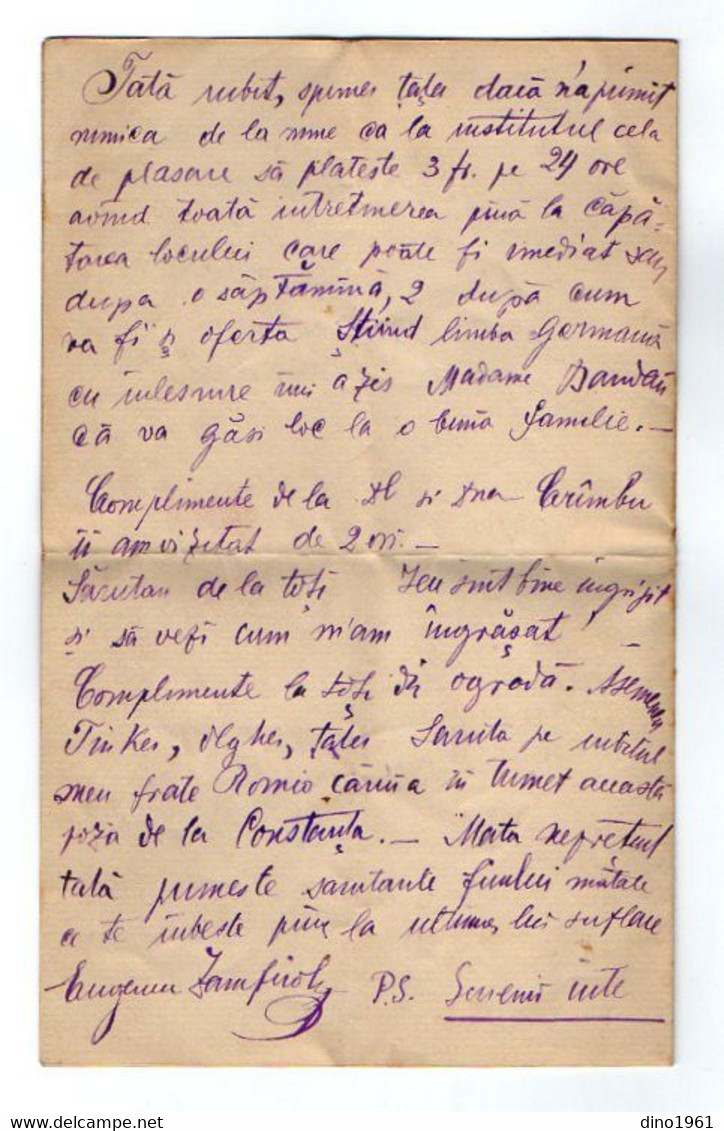 Tată iubit, spunei țața dacă n'a primit
nimica de la mine ca la institutul cela
de plasare să plateste 3 fr. pe 24 ore
avind toată intretinerea pină la căpă-
tarea locului care poate fi imediat sau
dupa o săptămînă, 2 după cum
va fi și oferta Știind limba Germană
cu inlesnire imi a zis Madame
că va găsi loc la o buna familie. —
Complimente de la Dl si Dna Crîmbu
ii am vizitat de 2 ori. —
Sărutari de la toți Ieu sint bine ingrijit
și să vezi cum m'am îngrășat!
Complimente la toți din ogradă. Asemenea
Tinkei, Olghei, țaței Saruta pe iubitul
meu frate Romio căruia ii trimet această
poză de la Constanța. — Mata neprețuit
tată primeste sarutarile fiului mătale
ce te iubeste pină la ultimul lui suflare
Eugeniu P.S. Scrienii iute
dino1961